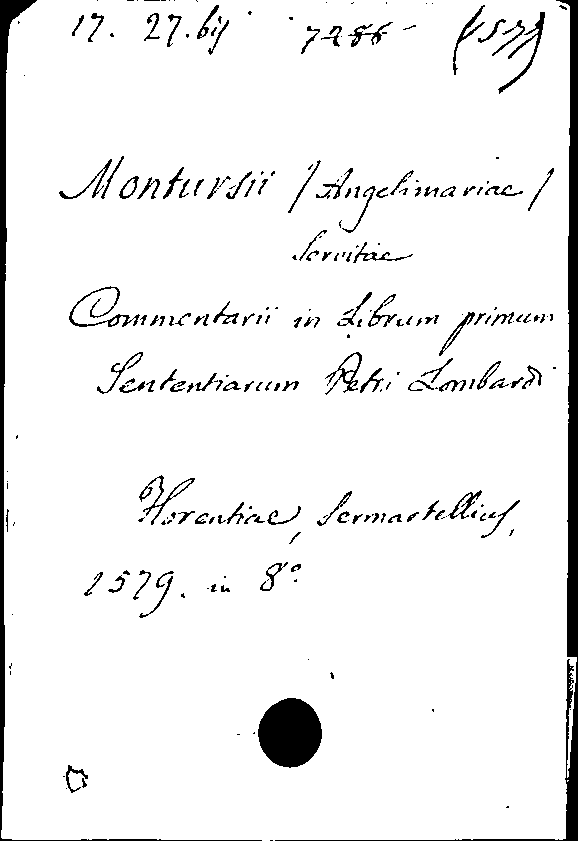 17. 27. bis 7286 (1579)
Montursii (Angelimariae)
Servitae
Commentarii in Librum primum
Sententiarum Petri Lombardi
Florentiae, Sermartellius,
1579. in 8°.